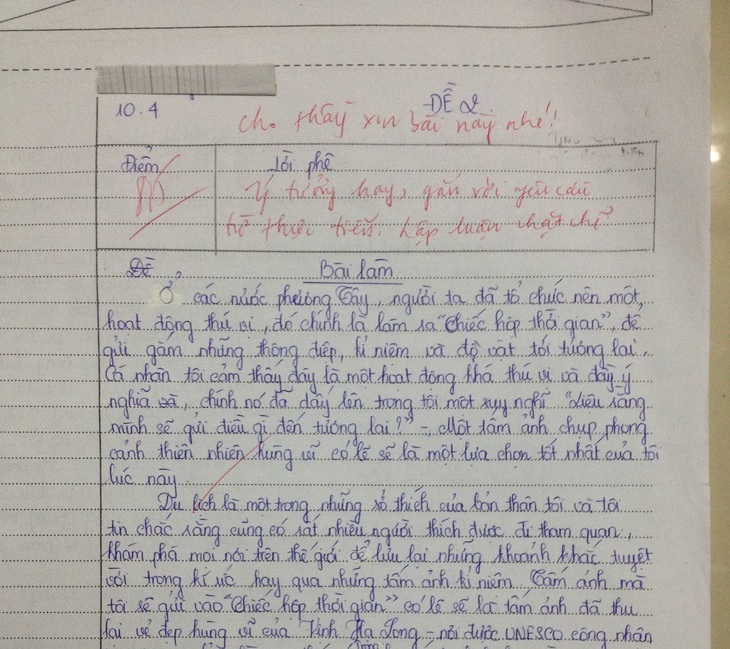 10.4
ĐỀ 2.
Cho thầy xin bài này nhé!
Điểm
Lời phê
Ý tưởng hay, gắn với yêu cầu
từ thực tiễn. Lập luận chặt chẽ
Đề
Bài làm
Ở các nước phương Tây, người ta đã tổ chức nên một
hoạt động thú vị, đó chính là làm ra "Chiếc hộp thời gian", để
gửi gắm những thông điệp, kỉ niệm và đồ vật tới tương lai.
Cá nhân tôi cảm thấy đây là một hoạt động khá thú vị và đầy ý
nghĩa và, chính nó đã dấy lên trong tôi một suy nghĩ "Liệu rằng
mình sẽ gửi điều gì đến tương lai?" - Một tấm ảnh chụp phong
cảnh thiên nhiên hùng vĩ có lẽ sẽ là một lựa chọn tốt nhất của tôi
lúc này.
Du lịch là một trong những sở thích của bản thân tôi và tôi
tin chắc rằng cũng có rất nhiều người thích được đi tham quan,
khám phá mọi nơi trên thế giới để lưu lại những khoảnh khắc tuyệt
vời trong kí ức hay qua những tấm ảnh kỉ niệm. Tấm ảnh mà
tôi sẽ gửi vào "Chiếc hộp thời gian" có lẽ sẽ là tấm ảnh đã thu
lại vẻ đẹp hùng vĩ của Vịnh Hạ Long - nơi được UNESCO công nhận